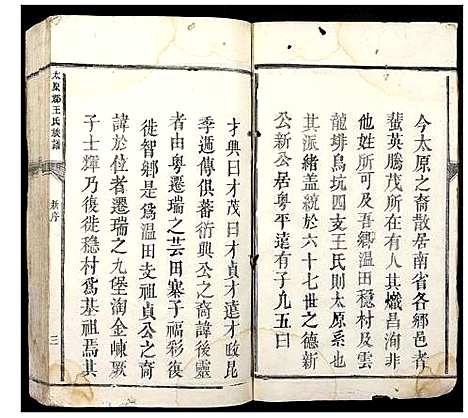 今太原之裔散居南省各鄉邑者
蜚英騰茂所在有人其熾昌洵非
他姓所可及吾鄉溫田穩村及雲
龍排烏坑四支王氏則太原系也
其派緒蓋統於六十七世之德新
公新公居粵平遠有子九五曰
才興曰才茂曰才貞才達才政昆
季遞傳俱蕃衍興公之裔諱後靈
者由粵遷瑞之芸田寨子福彩復
徙智鄉是為溫田支祖貞公之裔
諱於位者遷瑞之九堡淘金崠厥
子士輝乃復徙穩村為基祖焉其
太原郡王氏族譜
新序
三